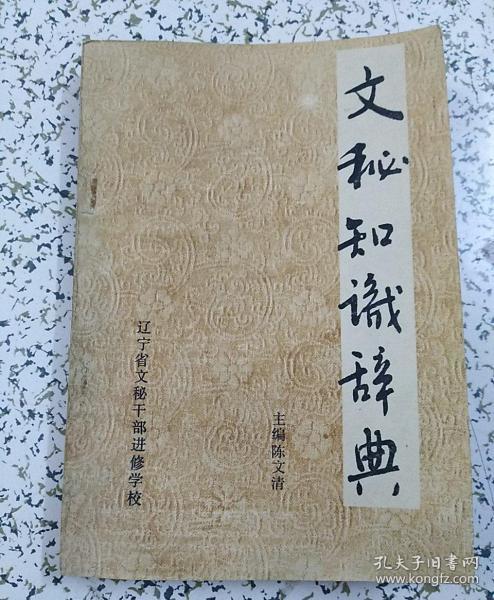 文秘知識辞典
主编陈文清
辽宁省文秘干部进修学校
孔夫子旧书网
www.kongfz.com